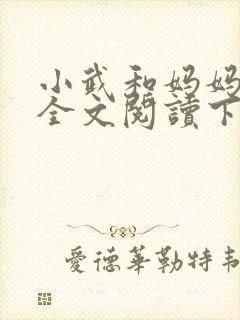 小武和妈妈
全文閱讀下
愛德華勒特韋